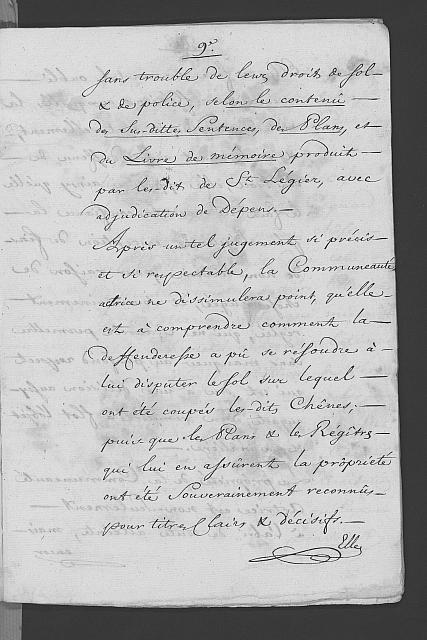 9.e
sans trouble de leurs droits de sol
& de police, selon le contenû
des Sus-dittes Sentences, des Plans, et
du Livre de mémoire produit
par les-dit de St. Légier, avec
adjudication de Dépens.
Après un tel jugement si précis
et si respectable, la Communeauté
actrice ne dissimulera point, qu'elle
est à comprendre comment la
deffenderesse a pû se résoudre à
lui disputer le sol sur lequel
ont été coupés les-dits Chênes;
puis que les Plans & les Régîtres
qui lui en assûrent la propriété
ont été Souverainement reconnûs
pour titres Clairs & décisifs.
Elle